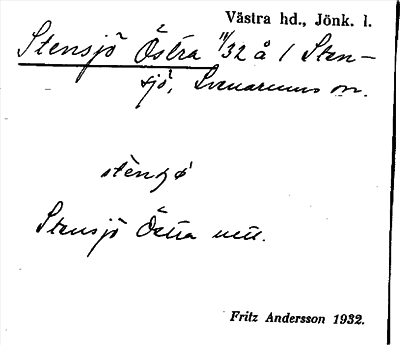 Västra hd., Jönk. l.
Stensjö Östra 11/32 å 1 Sten-
sjö, Svenarums sn.
Stensjö Östra
Fritz Andersson 1932.